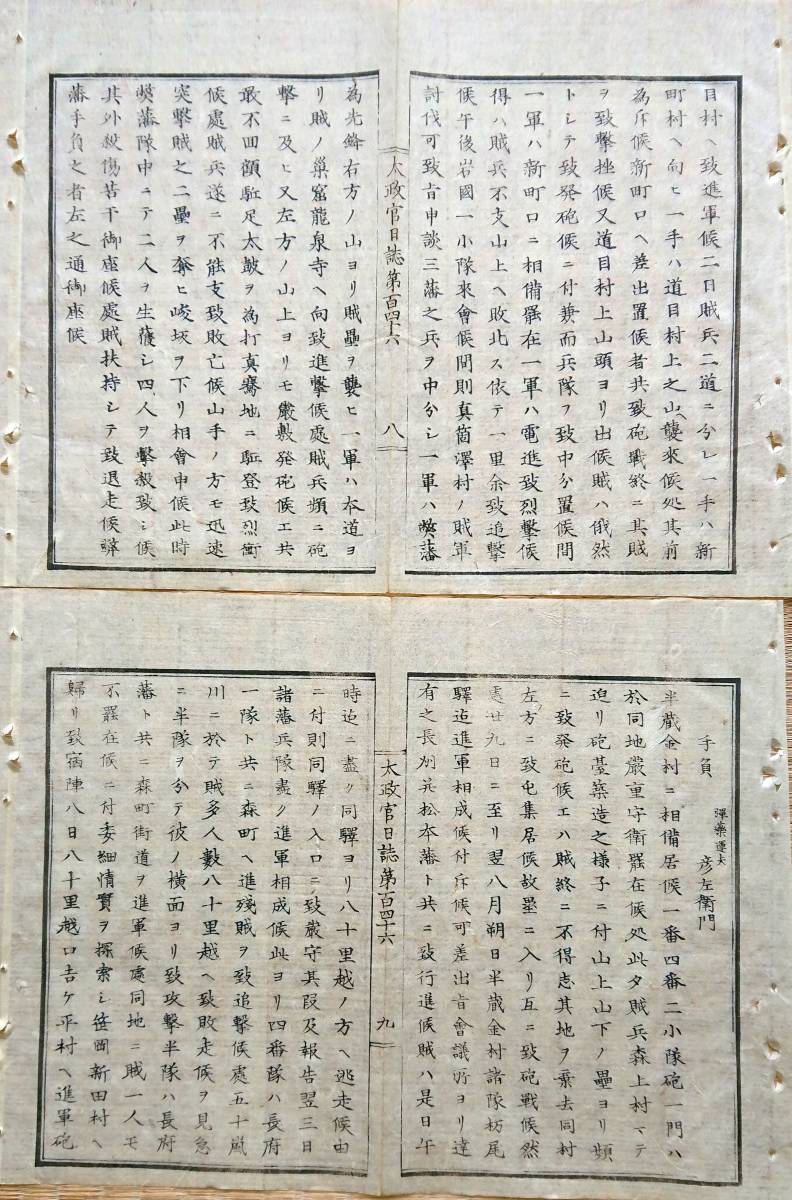 目村ヘ致進軍候二日賊兵二道ニ分レ一手ハ新
町村ヘ向ヒ一手ハ道目村上之山ヘ襲来候処其前
為斥候新町口ヘ差出置候者共致砲戦終ニ其賊
ヲ致撃挫候又道目村上山頭ヨリ出候賊ハ俄然
トシテ致発砲候ニ付兼而兵隊ヲ致中分置候間
一軍ハ新町口ニ相備罷在一軍ハ電進致烈撃候
得ハ賊兵不支山上ヘ敗北ス依テ一里余致追撃
候午後岩國一小隊來會候間則真箇澤村ノ賊軍
討伐可致旨申談三藩之兵ヲ中分シ一軍ハ弊藩
太政官日誌第百四十六
八
為先鋒右方ノ山ヨリ賊壘ヲ襲ヒ一軍ハ本道ヨ
リ賊ノ巣窟龍泉寺ヘ向致進撃候處賊兵頻ニ砲
撃ニ及ヒ又左方ノ山上ヨリモ嚴敷発砲候エ共
最不回顧駈足太鼓ヲ為打真驀地ニ駈登致烈衝
候處賊兵遂ニ不能支致敗亡候山手ノ方モ迅速
突撃賊之二壘ヲ奪ヒ峻坂ヲ下リ相會申候此時
弊藩隊中ニテ二人ヲ生獲シ四人ヲ撃殺致シ候
其外殺傷若干御座候處賊扶持シテ致退走候弊
藩手負之者左之通御座候
手負
彈藥運夫
彦左衛門
半蔵金村ニ相備居候一番四番二小隊砲一門ハ
於同地嚴重守衛罷在候処此夕賊兵森上村マテ
迫リ砲䑓築造之様子ニ付山上山下ノ壘ヨリ頻
ニ致発砲候エハ賊終ニ不得志其地ヲ棄去同村
左方ニ致屯集居候故壘ニ入リ互ニ致砲戦候然
處廿九日ニ至リ翌八月朔日半蔵金村諸隊栃尾
驛迄進軍相成候付斥候可差出旨會議所ヨリ達
有之長州并松本藩ト共ニ致行進候賊ハ是日午
太政官日誌第百四十六
九
時迄ニ盡ク同驛ヨリ八十里越ノ方ヘ逃走候由
ニ付則同驛ノ入口ニ致嚴守其段及報告翌三日
諸藩兵隊盡ク進軍相成候此ヨリ四番隊ハ長府
一隊ト共ニ森町ヘ進殘賊ヲ致追撃候處五十嵐
川ニ於テ賊多人數八十里越ヘ致敗走候ヲ見急
ニ半隊ヲ分テ彼ノ横面ヨリ致攻撃半隊ハ長府
藩ト共ニ森町街道ヲ進軍候處同地ニ賊一人モ
不罷在候ニ付委細情實ヲ探索シ笹岡新田村ヘ
歸リ致宿陣八日八十里越口吉ケ平村ヘ進軍砲